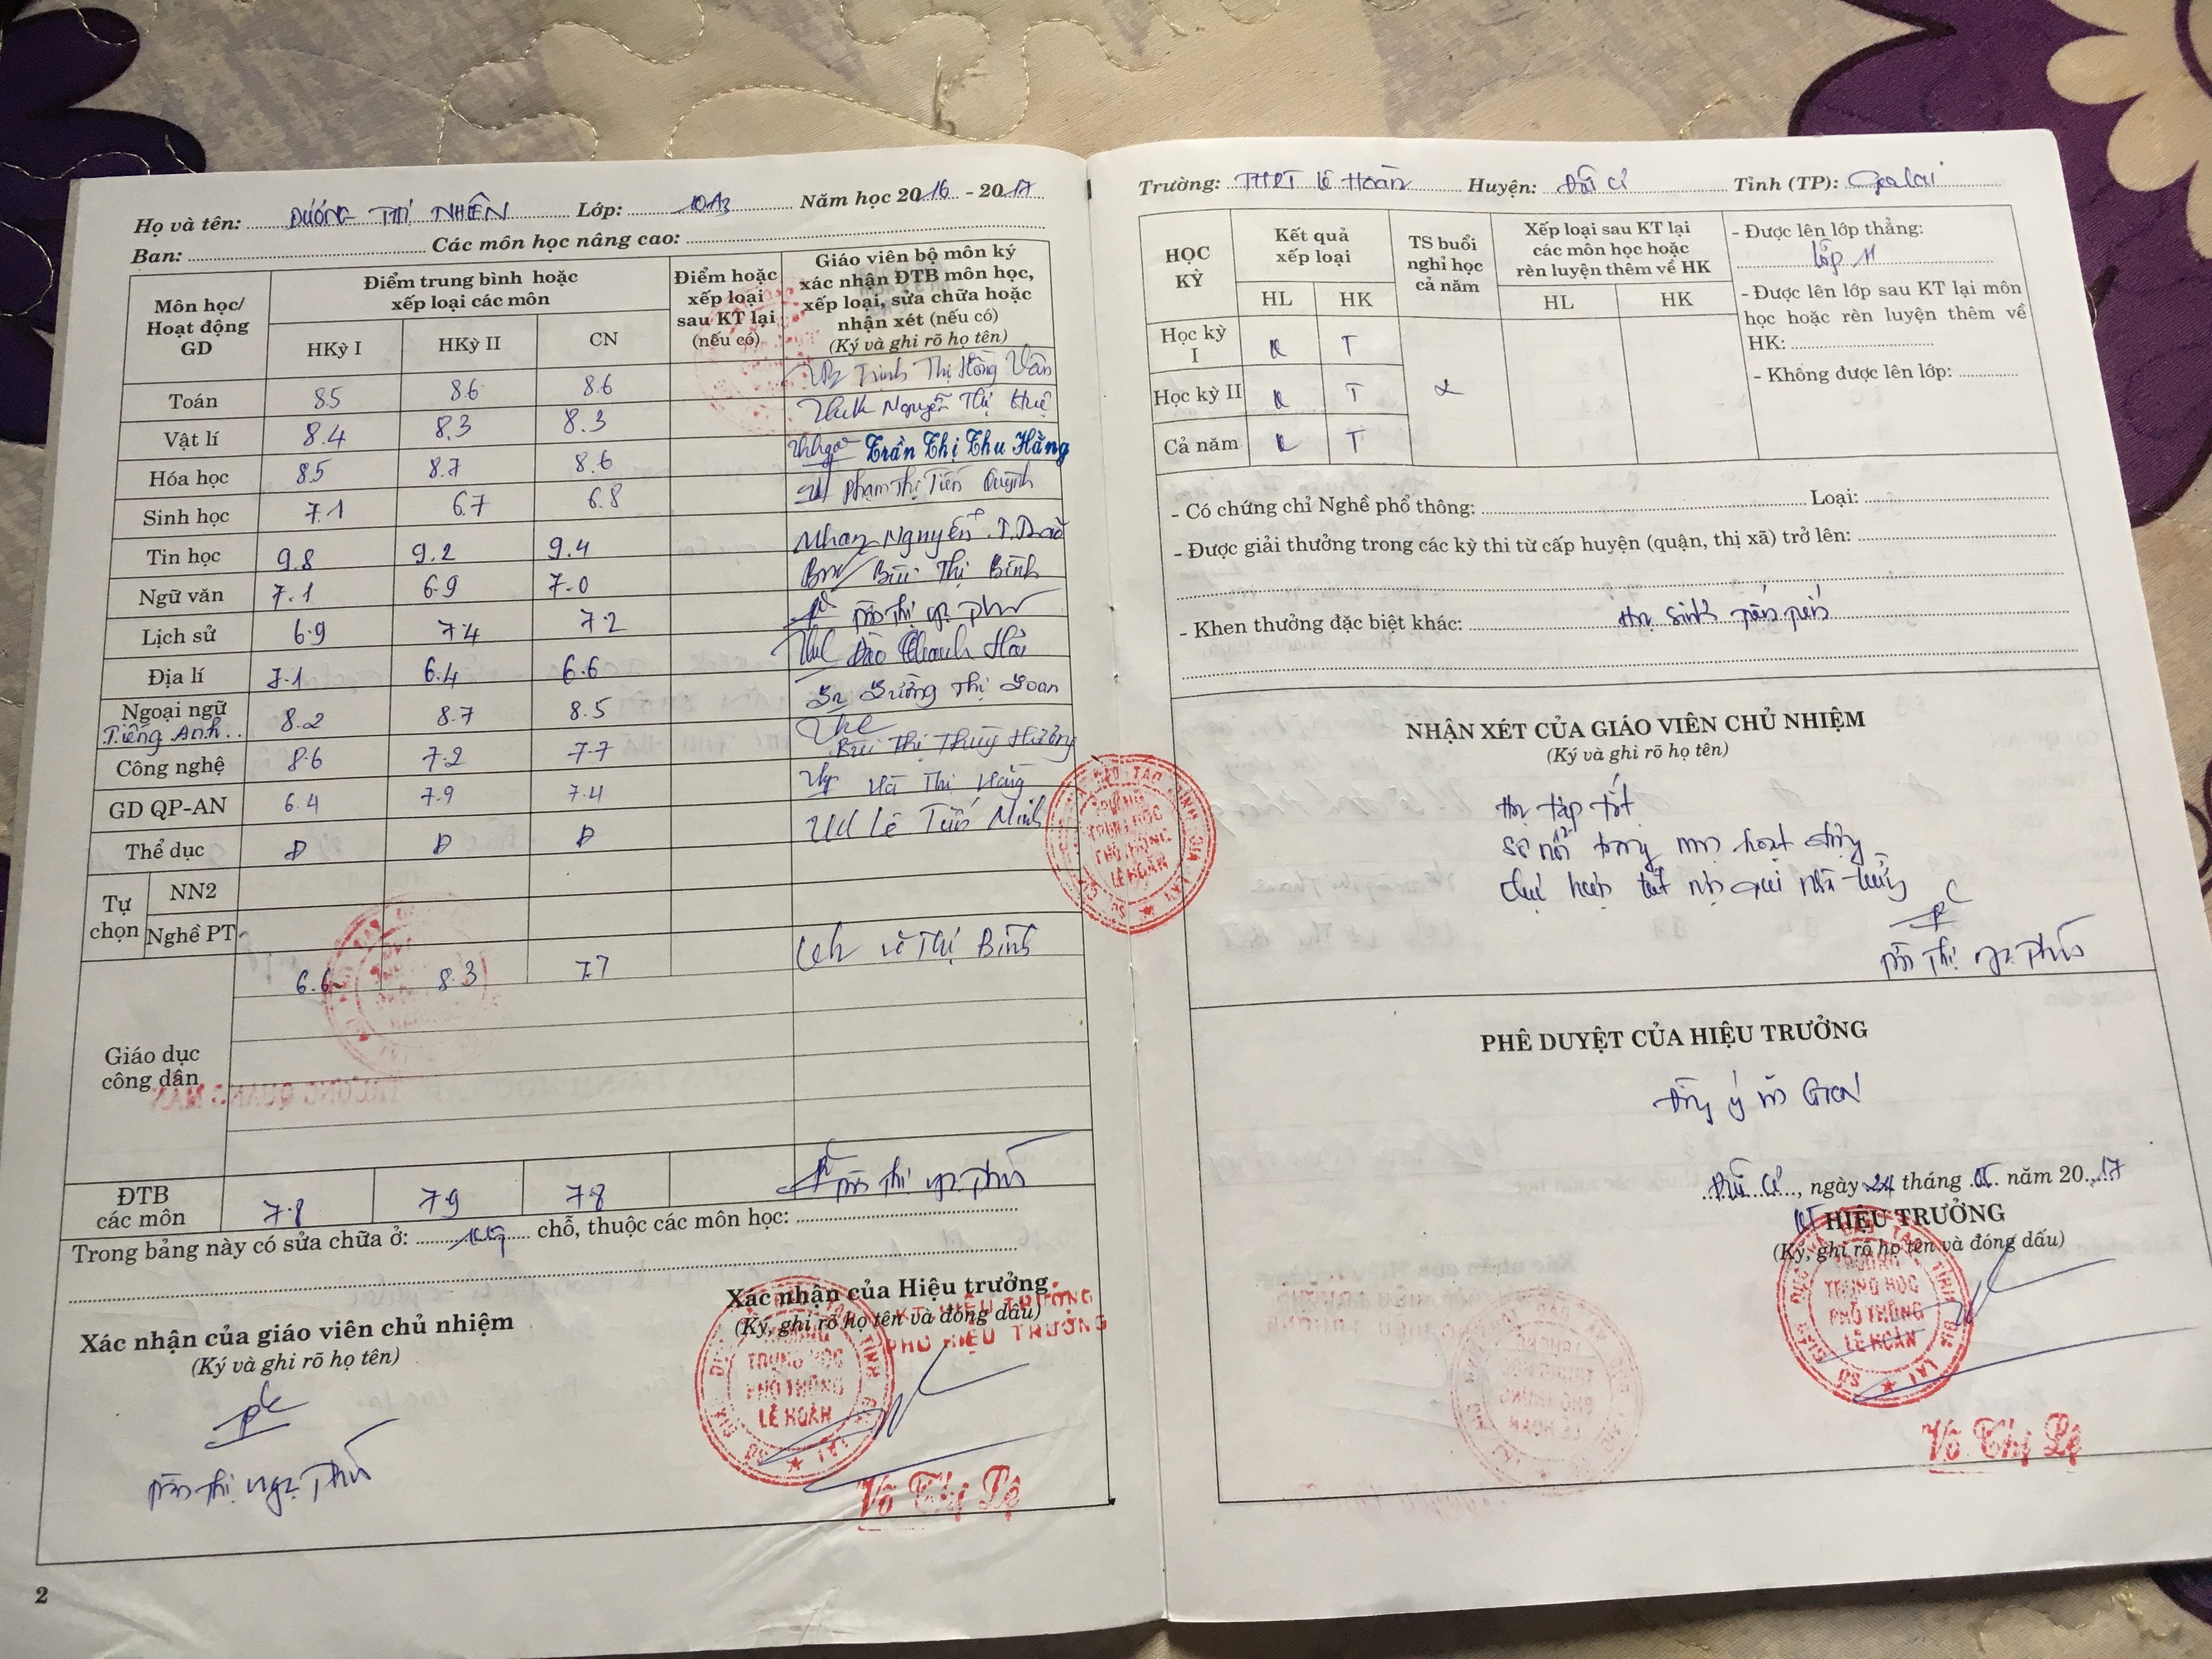 Họ và tên: DƯƠNG THỊ NHIÊN Lớp: 10A3 Năm học 2016 - 2017
Ban: Các môn học nâng cao:
Môn học/ Hoạt động GD
Điểm trung bình hoặc xếp loại các môn
Điểm hoặc xếp loại sau KT lại (nếu có)
Giáo viên bộ môn ký xác nhận ĐTB môn học, xếp loại, sửa chữa hoặc nhận xét (nếu có) (Ký và ghi rõ họ tên)
HKỳ I HKỳ II CN
Toán 8.5 8.6 8.6 Trịnh Thị Hồng Vân
Vật lí 8.4 8.3 8.3 Nguyễn Thị Huệ
Hóa học 8.5 8.7 8.6 Trần Thị Thu Hằng
Sinh học 7.1 6.7 6.8 Phạm Thị Tiến Quỳnh
Tin học 9.8 9.2 9.4 Nguyễn T.
Ngữ văn 7.1 6.9 7.0 Bùi Thị Bình
Lịch sử 6.9 7.4 7.2
Địa lí 7.1 6.4 6.6 Đào Thanh Hải
Ngoại ngữ Tiếng Anh 8.2 8.7 8.5 Trường Thị Loan
Công nghệ 8.6 7.2 7.7 Bùi Thị Thuý Hường
GD QP-AN 6.4 7.9 7.4 Hà Thị Hằng
Thể dục Đ Đ Đ Lê Tiến Minh
Tự chọn
NN2
Nghề PT
Giáo dục công dân 6.6 8.3 7.7 Thị Bình
ĐTB các môn 7.8 7.9 7.8
Trong bảng này có sửa chữa ở: chỗ, thuộc các môn học:
Xác nhận của giáo viên chủ nhiệm
(Ký và ghi rõ họ tên)
Xác nhận của Hiệu trưởng
(Ký, ghi rõ họ tên và đóng dấu)
KT HIỆU TRƯỞNG
PHÓ HIỆU TRƯỞNG
TRƯỜNG
TRUNG HỌC
PHỔ THÔNG
LÊ HOÀN
Võ Thị Lệ
2
Trường: THPT Lê Hoàn Huyện: Đức Cơ Tỉnh (TP): Gia Lai
HỌC KỲ
Kết quả xếp loại
TS buổi nghỉ học cả năm
Xếp loại sau KT lại các môn học hoặc rèn luyện thêm về HK
HL HK HL HK
Học kỳ I K T
Học kỳ II K T 2
Cả năm K T
- Được lên lớp thẳng:
lớp 11
- Được lên lớp sau KT lại môn học hoặc rèn luyện thêm về HK:
- Không được lên lớp:
- Có chứng chỉ Nghề phổ thông: Loại:
- Được giải thưởng trong các kỳ thi từ cấp huyện (quận, thị xã) trở lên:
- Khen thưởng đặc biệt khác: Học sinh tiên tiến
NHẬN XÉT CỦA GIÁO VIÊN CHỦ NHIỆM
(Ký và ghi rõ họ tên)
Học tập tốt
Sôi nổi trong mọi hoạt động
Thực hiện tốt nội qui nhà trường
PHÊ DUYỆT CỦA HIỆU TRƯỞNG
Đồng ý với GVCN
Đức Cơ, ngày 24 tháng 05 năm 2017
KT HIỆU TRƯỞNG
(Ký, ghi rõ họ tên và đóng dấu)
TRƯỜNG
TRUNG HỌC
PHỔ THÔNG
LÊ HOÀN
Võ Thị Lệ